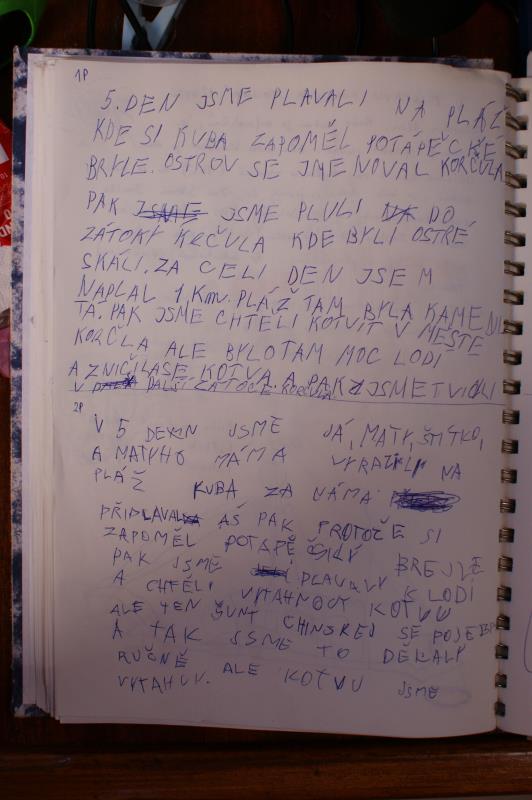 1P
5. DEN JSME PLAVALI NA PLÁŽ
KDE SI KUBA ZAPOMĚL POTÁPĚCKÉ
BRYLE. OSTROV SE JMENOVAL KORČULA
PAK JSME PLULI DO
ZÁTOKY KRČULA KDE BYLI OSTRÉ
SKÁLI. ZA CELI DEN JSEM
NAPLAL 1 Km. PLÁŽ TAM BYLA KAMENI
TA. PAK JSME CHTĚLI KOTVIT V MĚSTĚ
KORČLA ALE BYLO TAM MOC LODÍ
A ZNIČILA SE KOTVA. A PAK JSME
V DALŠÍ ZÁTOCE KORČULA
2P
V 5 DEN JSME JÁ, MATY, ŠMÍTKO,
A MATYHO MÁMA VYRAZILI NA
PLÁŽ KUBA ZA NÁMA
PŘIPLAVAL AŠ PAK PROTOČE SI
ZAPOMĚL POTAPĚČSKÝ BREJLE
PAK JSME PLAVALY K LODÍ
A CHTĚLI VYTAHNOUT KOTVU
ALE TEN ŠUNT CHINSKEJ SE
A TAK JSME TO DĚLALY
RUČNĚ ALE KOTVU JSME